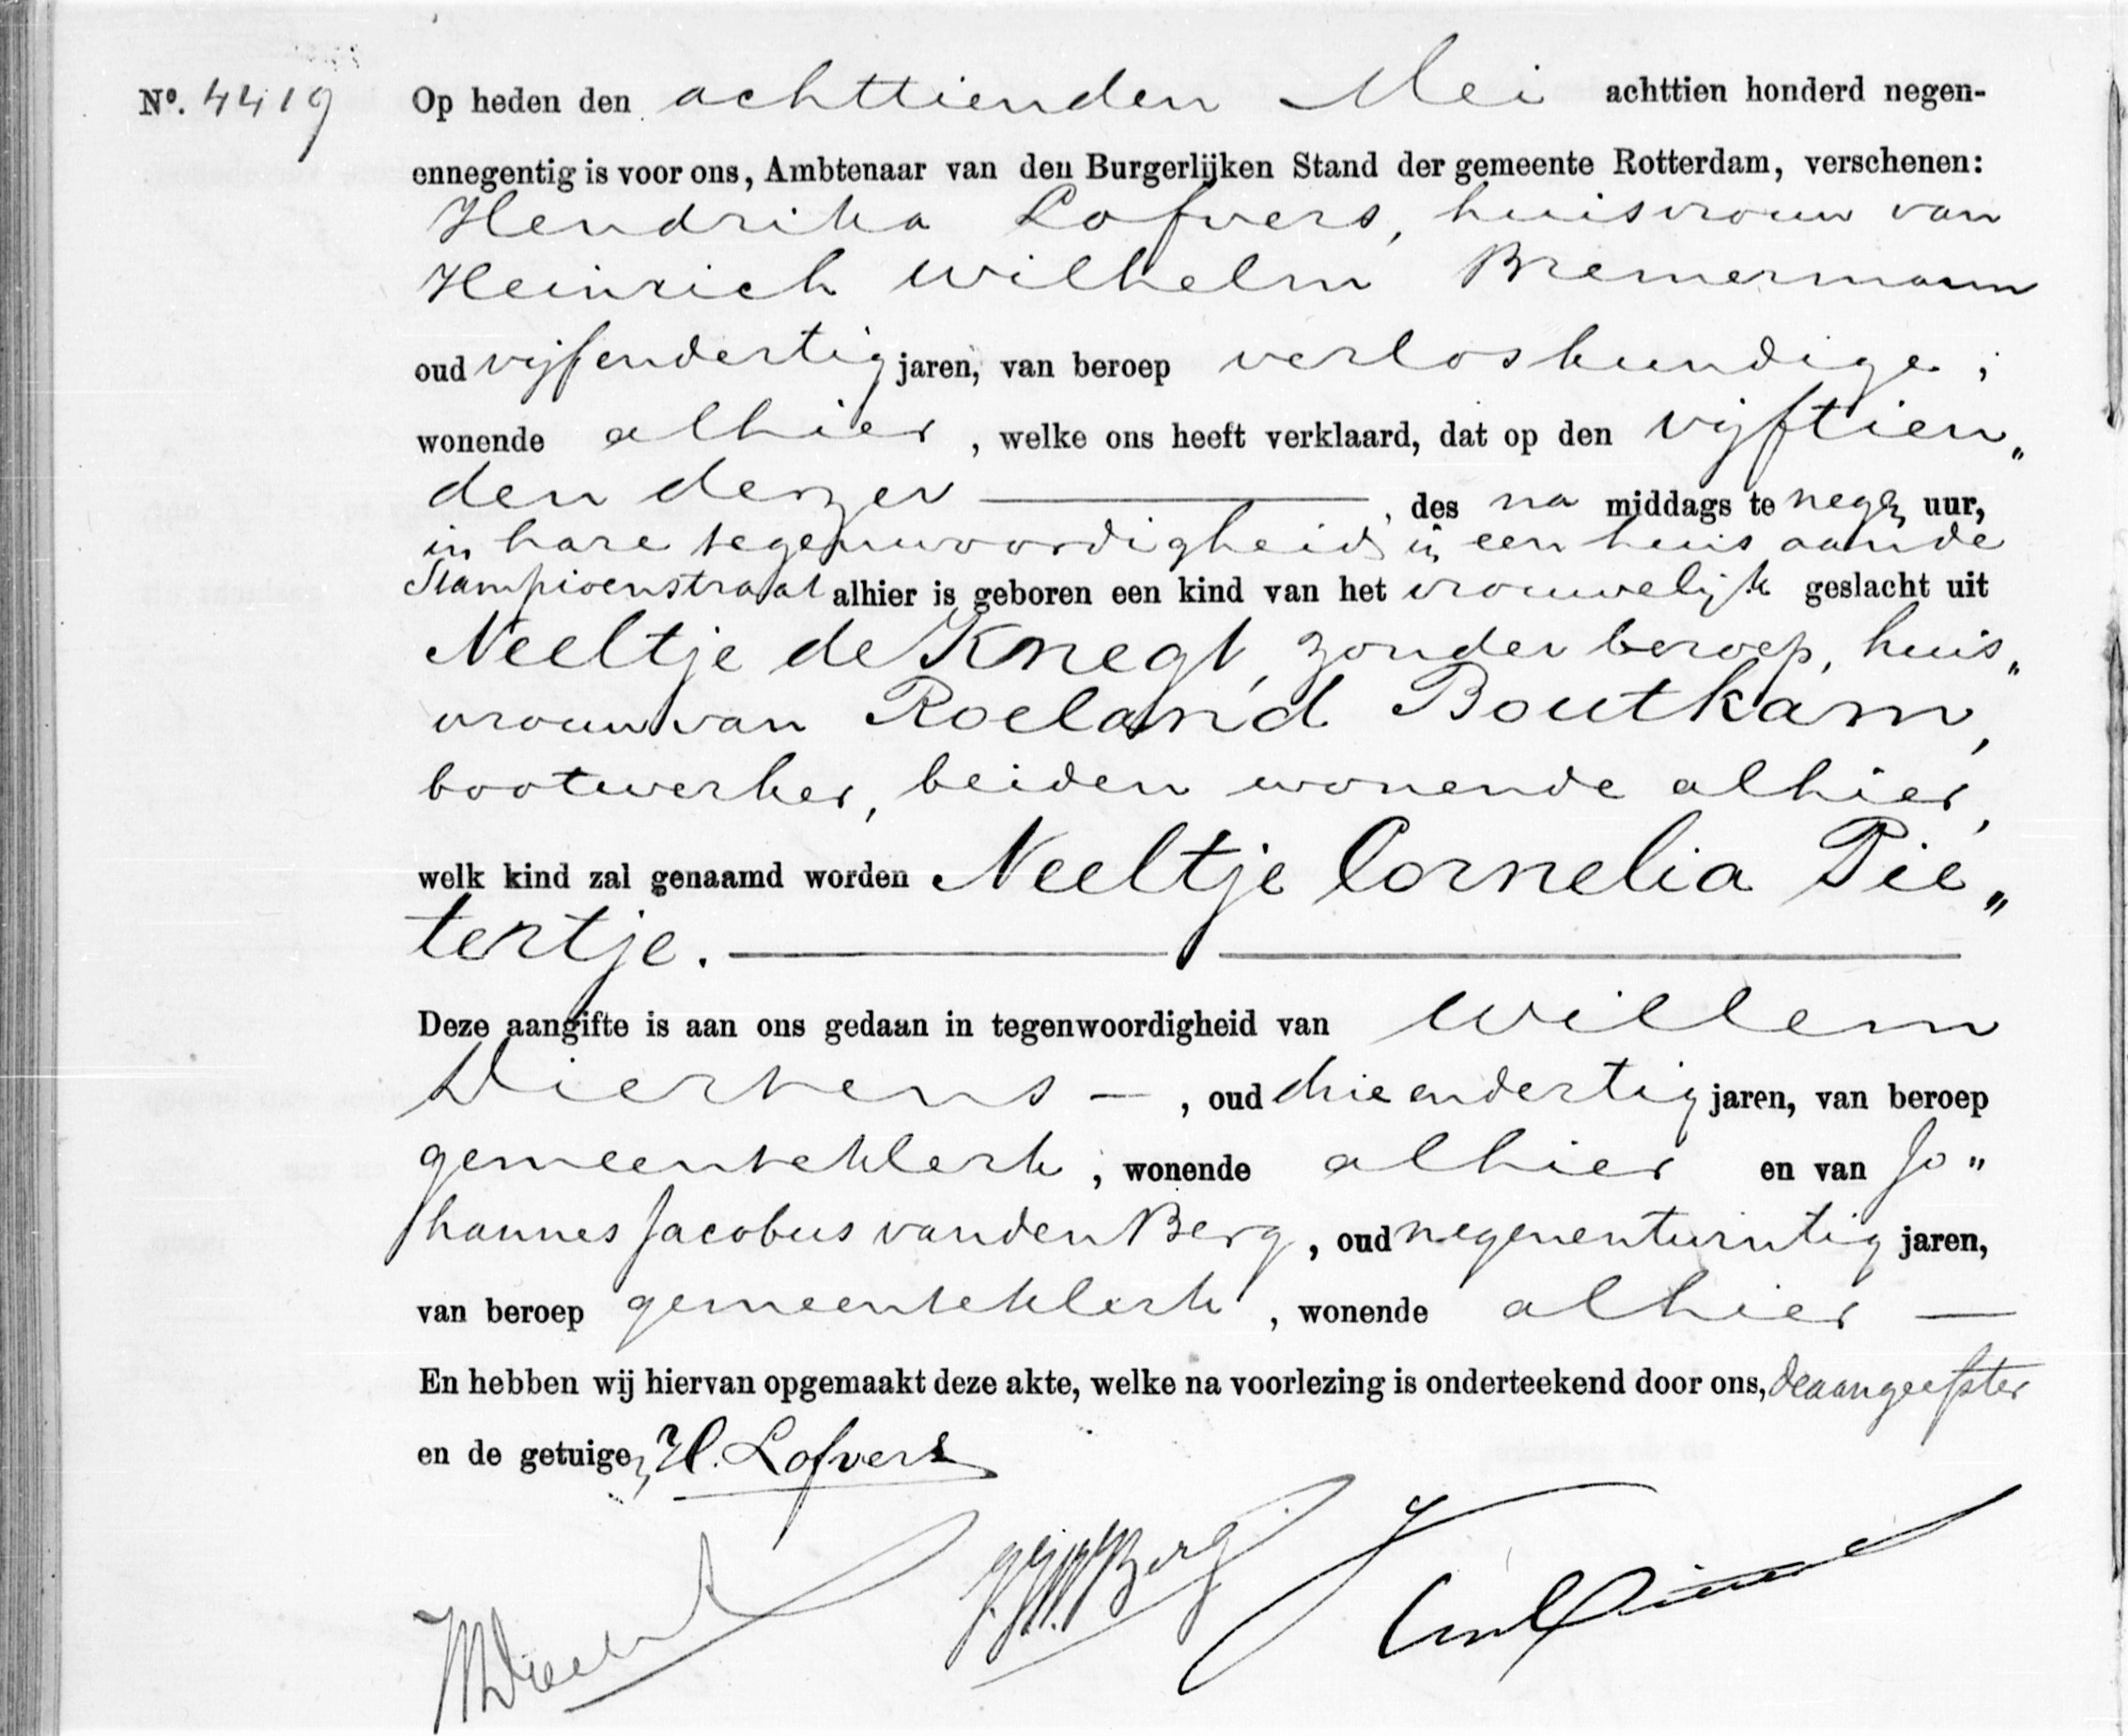 Nº. 4419 Op heden den achttienden Mei achttien honderd negen-
ennegentig is voor ons, Ambtenaar van den Burgerlijken Stand der gemeente Rotterdam, verschenen:
Hendrika Lofvers, huisvrouw van
Heinrich Wilhelm Bremermann
oud vijfendertig jaren, van beroep verloskundige,
wonende alhier, welke ons heeft verklaard, dat op den vijftien„
den dezer , des na middags te negen uur,
in hare tegenwoordigheid in een huis aan de
Stampioenstraat alhier is geboren een kind van het vrouwelijk geslacht uit
Neeltje de Knegt, zonder beroep, huis„
vrouw van Roeland Boutkam,
bootwerker, beiden wonende alhier,
welk kind zal genaamd worden Neeltje Cornelia Pie„
tertje.
Deze aangifte is aan ons gedaan in tegenwoordigheid van Willem
Dierkens —, oud drieendertig jaren, van beroep
gemeenteklerk, wonende alhier en van Jo„
hannes Jacobus van den Berg, oud negenentwintig jaren,
van beroep gemeenteklerk, wonende alhier —
En hebben wij hiervan opgemaakt deze akte, welke na voorlezing is onderteekend door ons, de aangeefster
en de getuigen, H. Lofvers
J.J.v.d.Berg